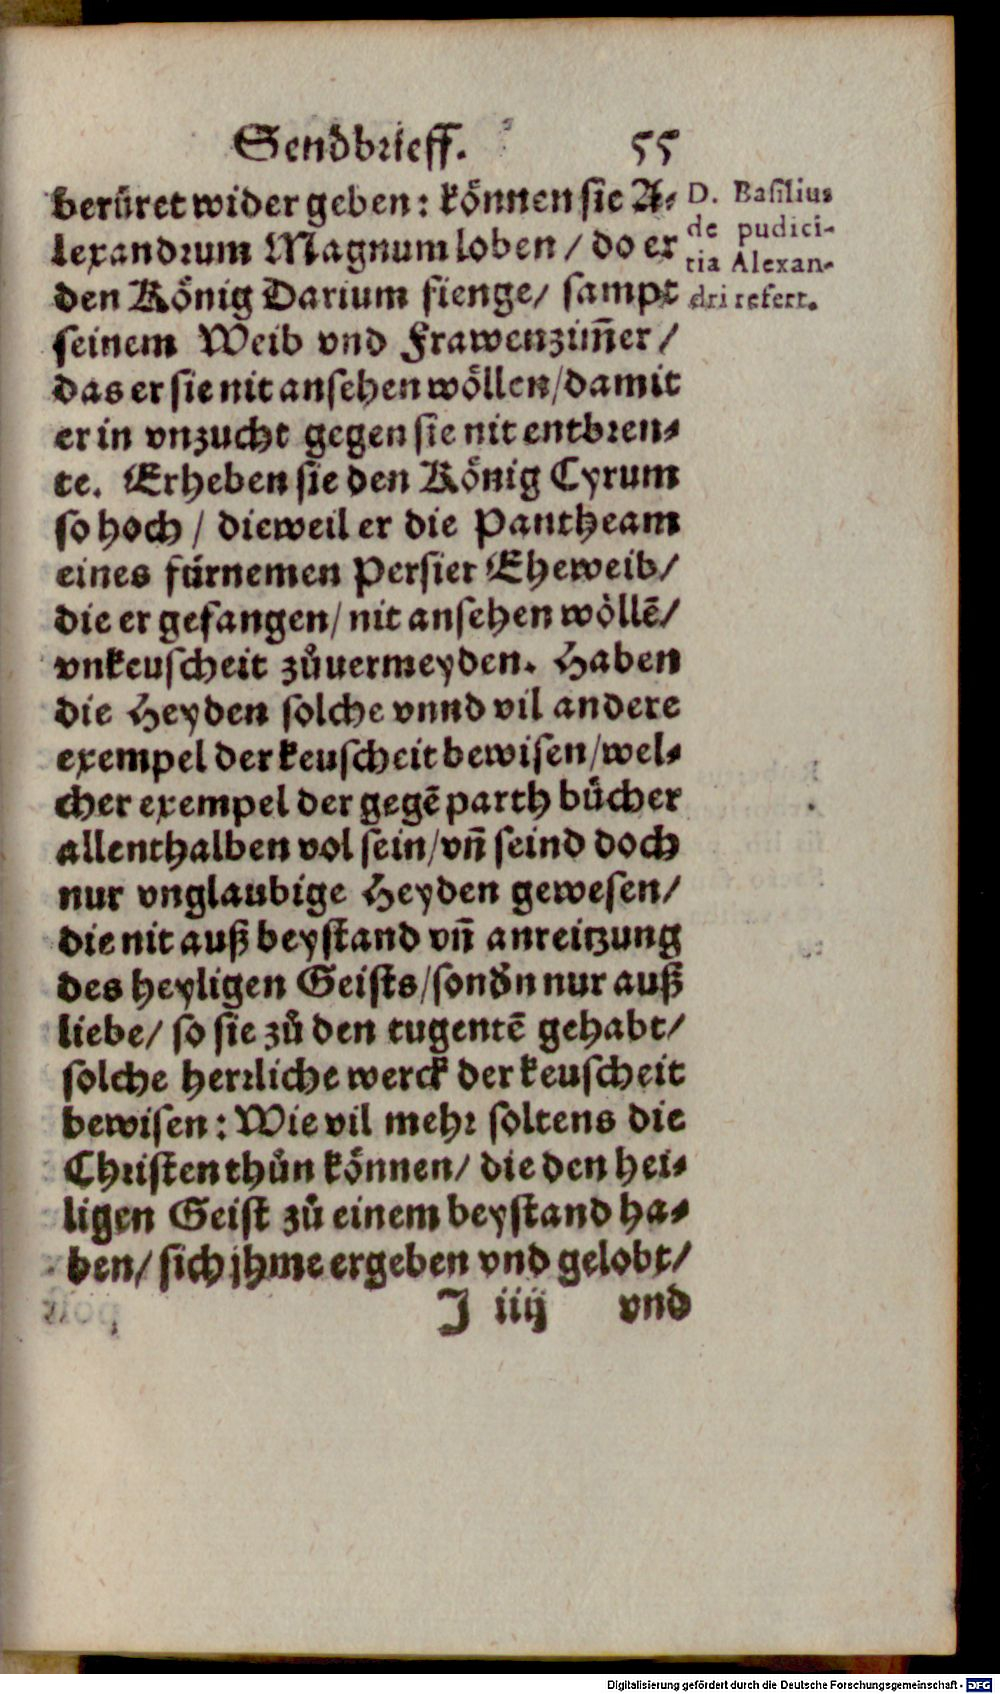 Sendbrieff. 55
berüret wider geben: können sie A-
lexandrum Magnum loben / do er
den König Darium fienge / sampt
seinem Weib vnd Frawenzim̄er /
das er sie nit ansehen wöllen / damit
er in vnzucht gegen sie nit entbren-
te. Erheben sie den König Cyrum
so hoch / dieweil er die Pantheam
eines fürnemen Persier Eheweib /
die er gefangen / nit ansehen wöllē /
vnkeuscheit zůuermeyden. Haben
die Heyden solche vnnd vil andere
exempel der keuscheit bewisen / wel-
cher exempel der gegē parth bücher
allenthalben vol sein / vn̄ seind doch
nur vnglaubige Heyden gewesen /
die nit auß beystand vn̄ anreitzung
des heyligen Geists / sondn nur auß
liebe / so sie zů den tugentē gehabt /
solche herrliche werck der keuscheit
bewisen: Wie vil mehr soltens die
Christen thůn können / die den hei-
ligen Geist zů einem beystand ha-
ben / sich jhme ergeben vnd gelobt /
J iiij vnd
D. Basilius
de pudici-
tia Alexan-
dri refert.
Digitalisierung gefördert durch die Deutsche Forschungsgemeinschaft - DFG